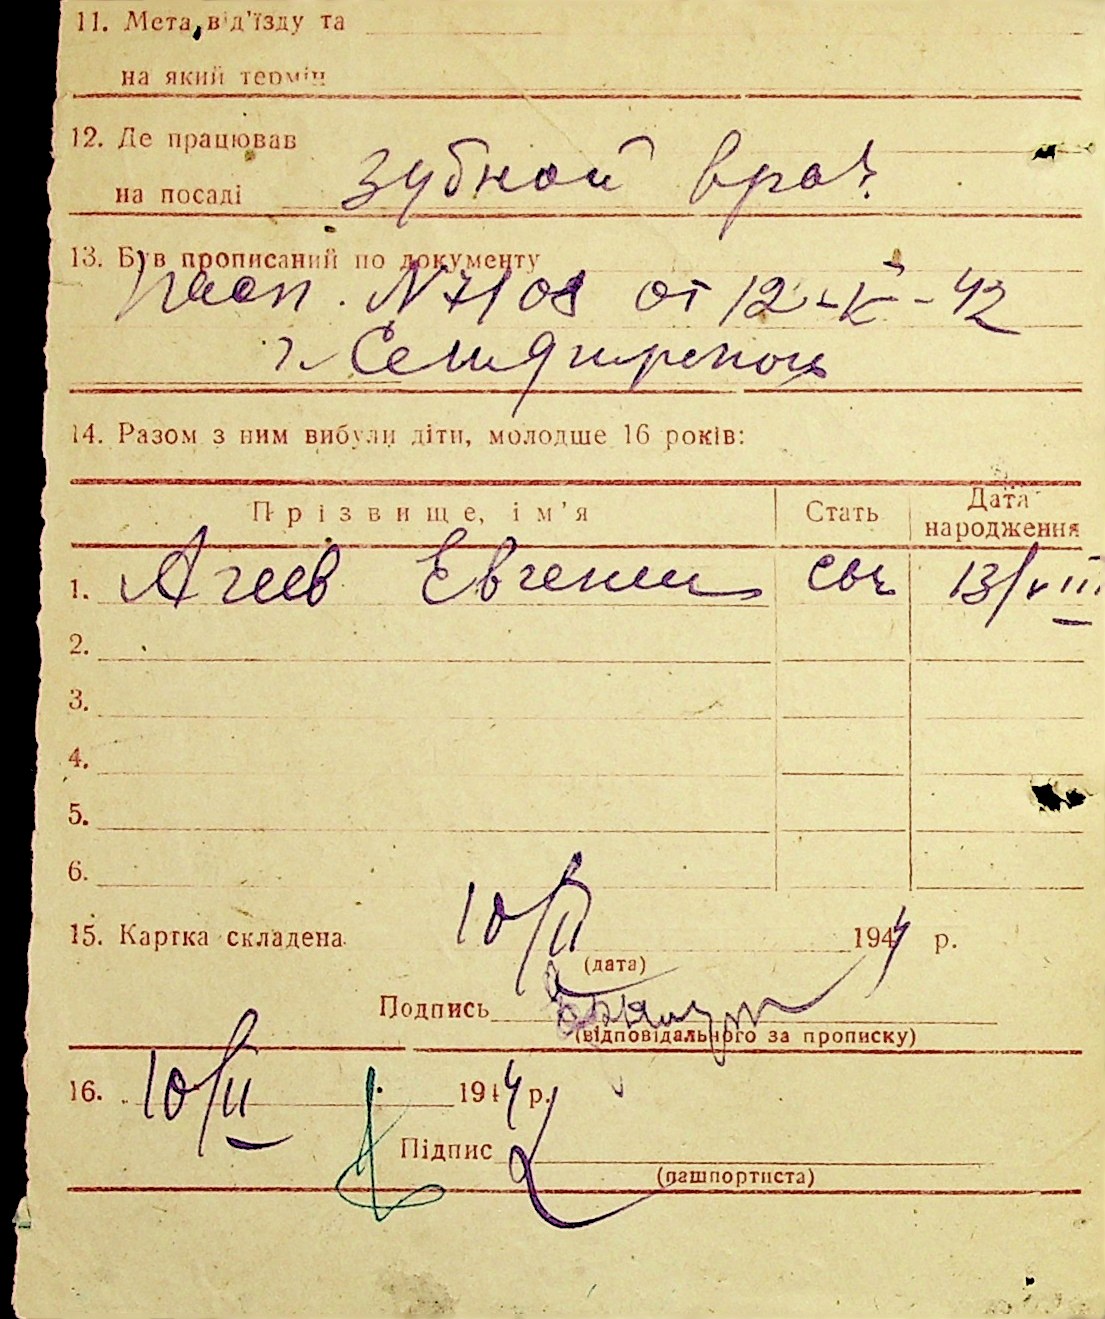 11. Мета від'їзду та
на який термін
12. Де працював
на посаді зубной врач
13. Був прописаний по документу
пасп. N 7108 от 12-V-42
г. Симферополь
14. Разом з ним вибули діти, молодше 16 років:
Прізвище, ім'я Стать Дата народження
1. Агеев Евгений сын 13/VIII
2.
3.
4.
5.
6.
15. Картка складена 10/II 1944 р.
(дата)
Подпись
(відповідального за прописку)
16. 10/II 1944 р.
Підпис
(пашпортиста)